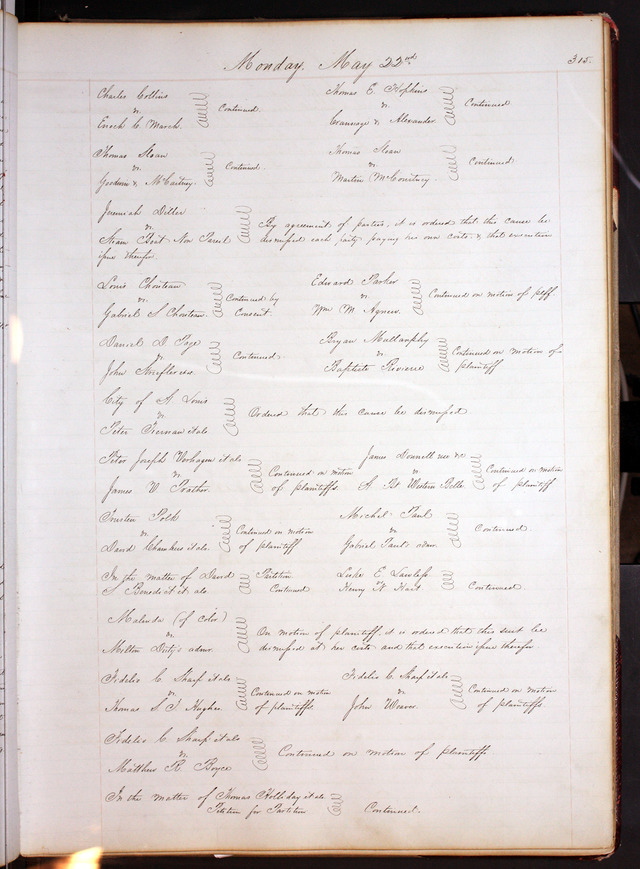 Monday. May 22nd
315.
Charles Collins
vs.
Enoch C. March.
Continued.
Thomas E. Hopkins
vs.
& Alexander
Continued.
Thomas Sloan
vs.
Goodwin & McCartney.
Continued.
Thomas Sloan
vs.
Martin McCourtney.
Continued.
Jeremiah Diller
vs.
Steam Boat Non Pareil
By agreement of parties, it is ordered that this cause be
dismissed each party paying his own costs & that execution
issue therefor.
Louis Chouteau
vs.
Gabriel S Chouteau.
Continued by
Consent.
Edward Parker
vs.
Wm M Agnew.
Continued on motion of plff.
Daniel D. Page
vs.
John
Continued.
Bryan Mullanphy
vs
Baptiste Riviere
Continued on motion of
plaintiff
City of St. Louis
vs.
Peter Tiernan et als
Ordered that this cause be dismissed
Peter Joseph Verhagen et als
vs.
James V. Prather.
Continued on motion
of plaintiffs.
James Donnell
vs
S. Bt Western Belle
Continued on motion
of plaintiff
Trusten Polk
vs.
David Chambers et als.
Continued on motion
of plaintiff
Michel Paul
vs
Gabriel Paul's admr.
Continued.
In the matter of David
S Benedict et als
Partition
Continued
Luke E. Lawless
Henry W Hart
Continued.
Malinda (of color)
vs.
Milton Duty's admr.
On motion of plaintiff, it is ordered that this suit be
dismissed at her costs and that execution issue therefor
Fidelio C. Sharp et als
vs.
Thomas S. J. Hughes
Continued on motion
of plaintiffs.
Fidelio C. Sharp et als
vs
John Weaver.
Continued on motion
of plaintiffs.
Fidelio C. Sharp et als
vs
Matthew R. Boyce
Continued on motion of plaintiffs
In the matter of Thomas Holliday et als
Petition for Partition
Continued.